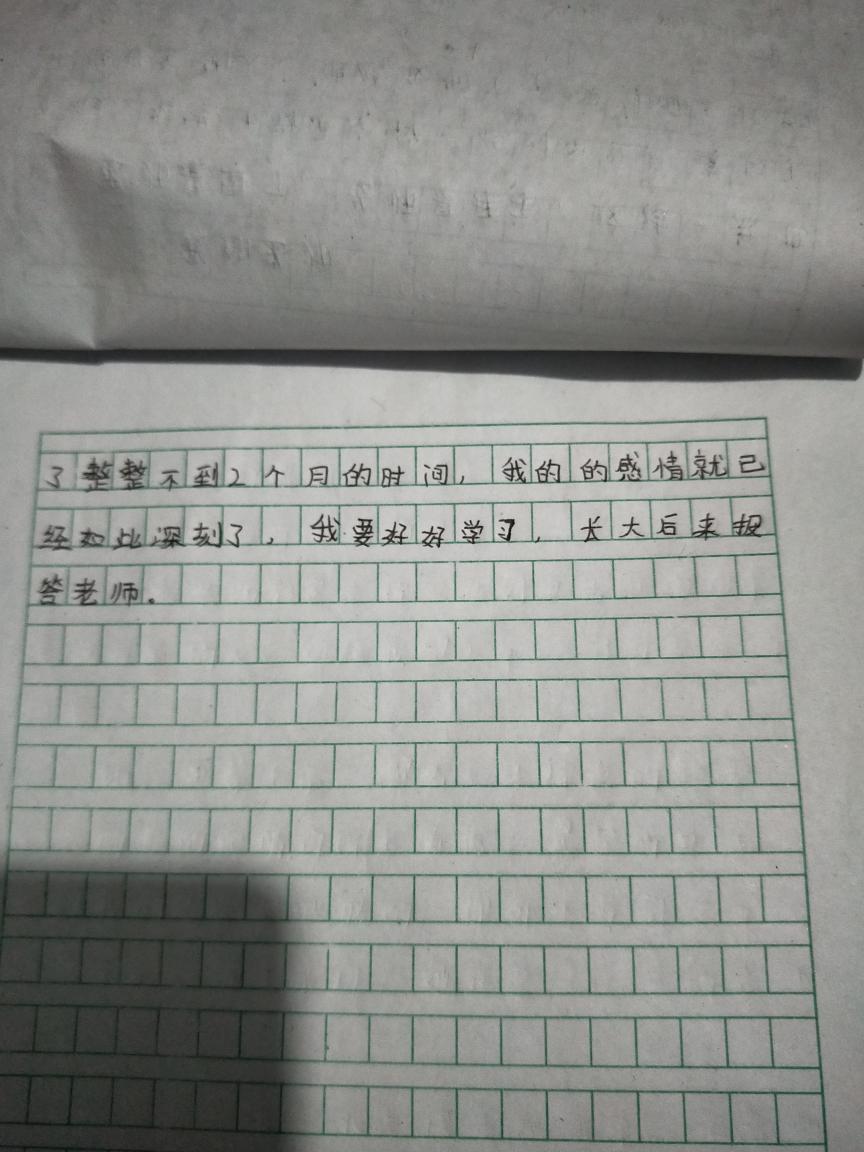 了整整不到2个月的时间，我的的感情就已
经如此深刻了，我要好好学习，长大后来报
答老师。